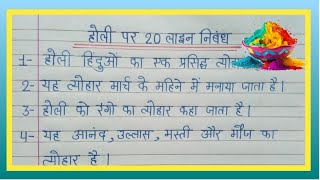 होली पर 20 लाइन निबंध
1- होली हिंदुओं का एक प्रसिद्ध
2- यह त्योहार मार्च के महिने में मनाया जाता है।
3- होली को रंगो का त्योहार कहा जाता है।
4- यह आनंद, उल्लास, मस्ती और मौज का
त्योहार है।